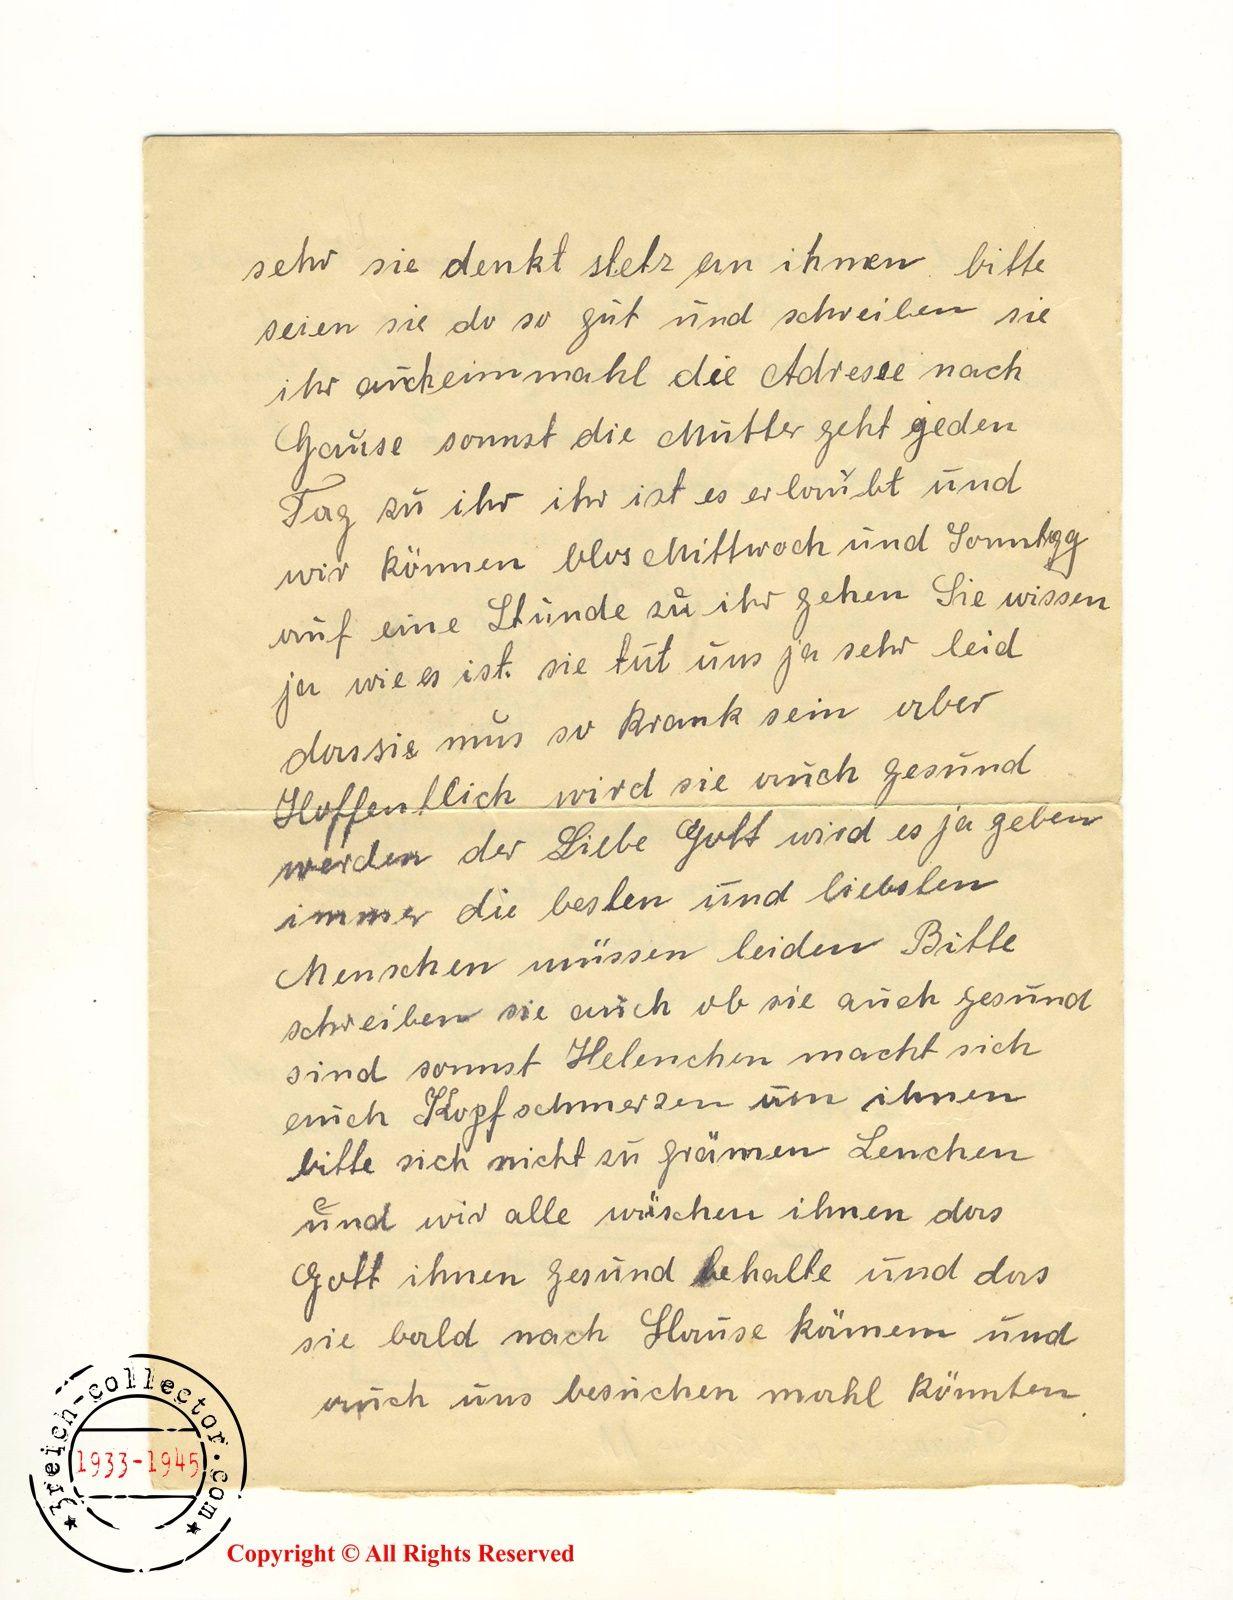 sehr sie denkt stetz an ihnen bitte
seien sie do so gut und schreiben sie
ihr aucheinmmahl die Adresse nach
Hause sonnst die Mutter geht jeden
Tag zu ihr ihr ist es erlaubt und
wir können blos Mittwoch und Sonntag
auf eine Stunde zu ihr gehen Sie wissen
ja wie es ist. sie tut uns ja sehr leid
dassie mus so krank sein aber
Hoffentlich wird sie auch gesund
werden der Liebe Gott wird es ja geben
immer die besten und liebsten
Menschen müssen leiden Bitte
schreiben sie auch ob sie auch gesund
sind sonnst Helenchen macht sich
auch Kopfschmerzen um ihnen
bitte sich nicht zu grämen Lenchen
und wir alle wüschen ihnen das
Gott ihnen gesund behalte und das
sie bald nach Hause kämem und
auch uns besuchen mahl könnten
*3reich-collector.com*
1933-1945
Copyright © All Rights Reserved